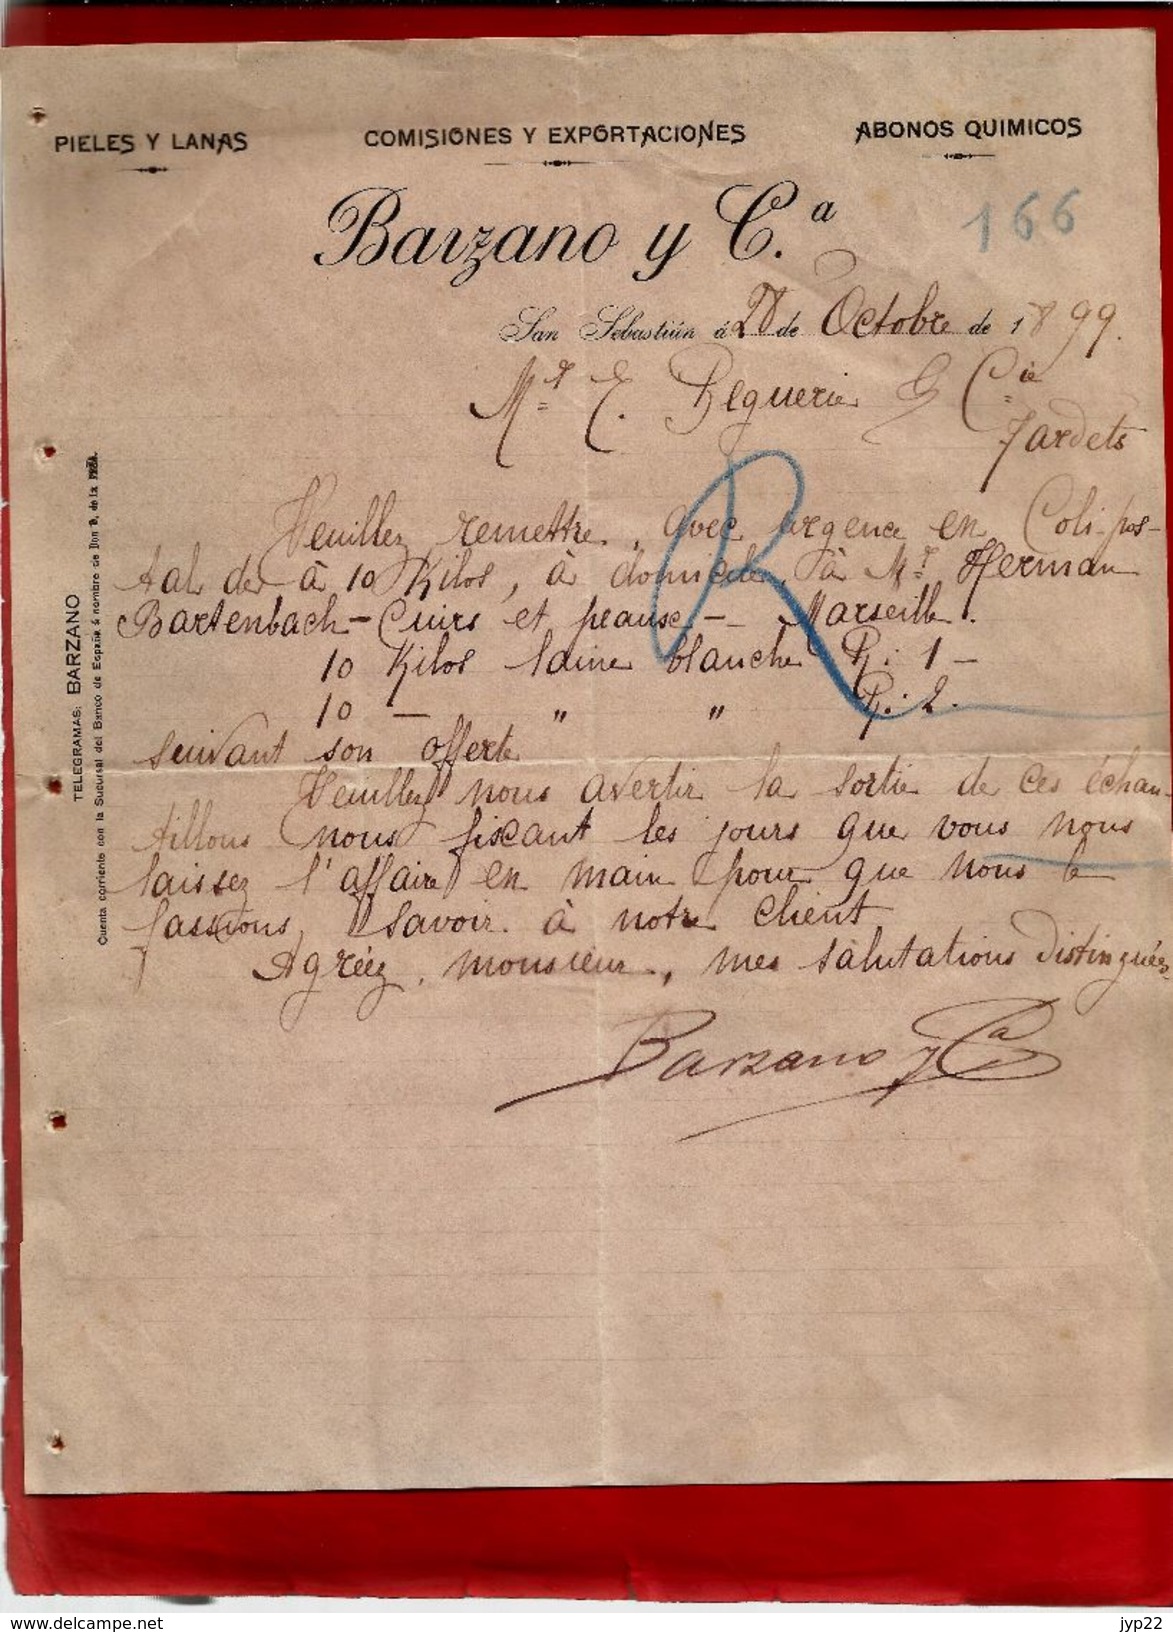 PIELES Y LANAS COMISIONES Y EXPORTACIONES ABONOS QUIMICOS
Barzano y C.ª
166
San Sebastián á 28 de Octobre de 1899.
Mr E. & Cie
Tardets
Veuillez remettre, avec urgence en Coli pos-
tal de à 10 Kilos, à domicile, à Mr. Herman
Bartenbach - Cuirs et peause - Marseille.
10 Kilos laine blanche R: 1 -
10 — " " R: 2.
suivant son offerte
Veuillez nous avertir la sortie de ces échan-
tillons nous fiscant les jours que vous nous
laissez l'affaire en main pour que nous le
fassions savoir à notre client
Agréez, monsieur, mes salutations distinguées
Barzano y Ca
R
TELEGRAMAS: BARZANO
Cuenta corriente con la Sucursal del Banco de España á nombre de Don B. de la
www.delcampe.net
jyp22